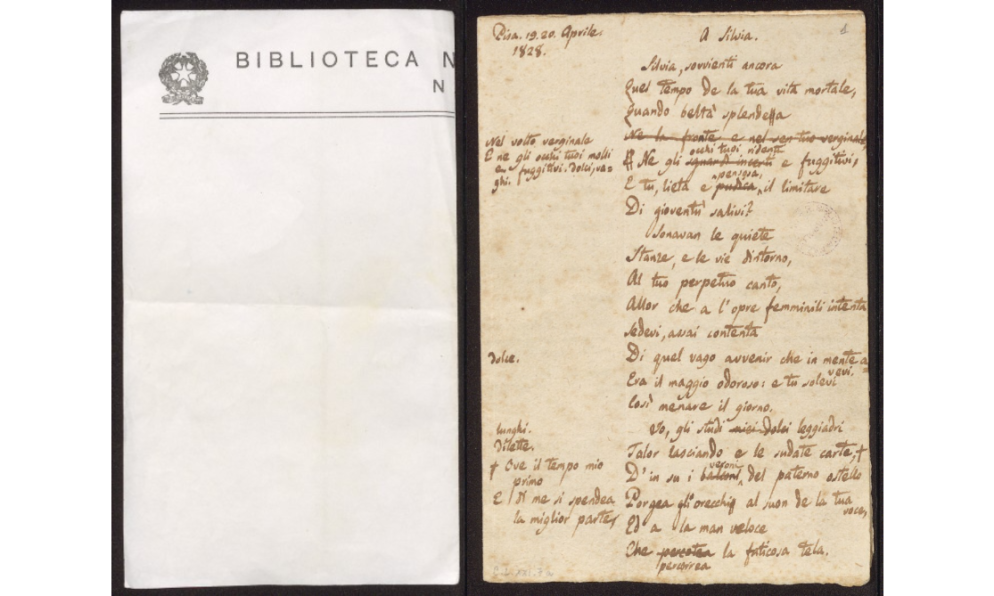 BIBLIOTECA N
N
Pisa. 19. 20. Aprile.
1828.
A Silvia.
Silvia, sovvienti ancora
Quel tempo de la tua vita mortale,
Quando beltà splendea
Ne la fronte e nel sen tuo verginale
Nel volto verginale
E ne gli occhi tuoi molli
e fuggitivi. dolci, va=
ghi.
occhi tuoi ridenti
Ne gli sguardi incerti e fuggitivi,
pensosa,
E tu, lieta e pudica, il limitare
Di gioventù salivi?
Sonavan le quiete
Stanze, e le vie dintorno,
Al tuo perpetuo canto,
Allor che a l'opre femminili intenta
Sedevi, assai contenta
dolce.
Di quel vago avvenir che in mente a
vevi.
Era il maggio odoroso: e tu solevi
Così menare il giorno.
lunghi.
dilette.
Io, gli studi miei dolci leggiadri
Talor lasciando e le sudate carte, +
+ Ove il tempo mio
primo
E di me si spendea
la miglior parte,
veroni
D'in su i balconi del paterno ostello
Porgea gli orecchi al suon de la tua
voce,
Ed a la man veloce
Che percotea la faticosa tela.
percorrea